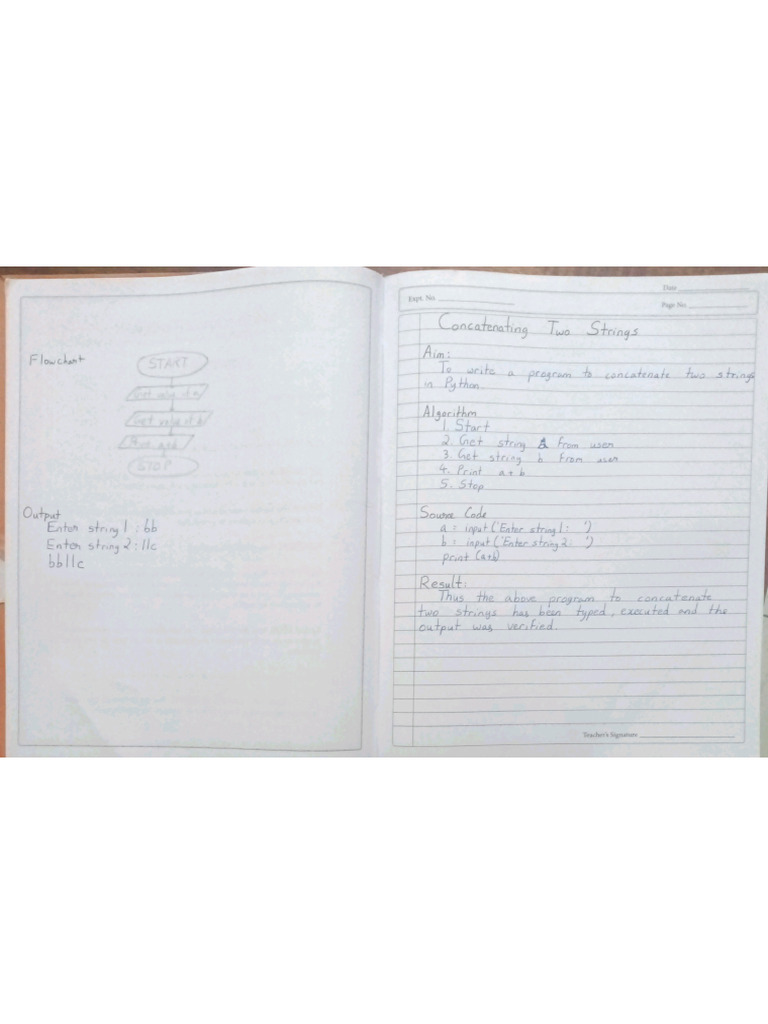 Flowchart
START
Get value of a
Get value of b
STOP
Output
Enter string 1 : bb
Enter string 2 : llc
bbllc
Date
Expt. No.
Page No.
Concatenating Two Strings
Aim:
To write a program to concatenate two strings
in Python.
Algorithm
1. Start
2. Get string a from user
3. Get string b from user
4. Print a+b
5. Stop
Source Code
a = input ('Enter string 1: ')
b = input ('Enter string 2: ')
print (a+b)
Result:
Thus the above program to concatenate
two strings has been typed, executed and the
output was verified.
Teacher's Signature